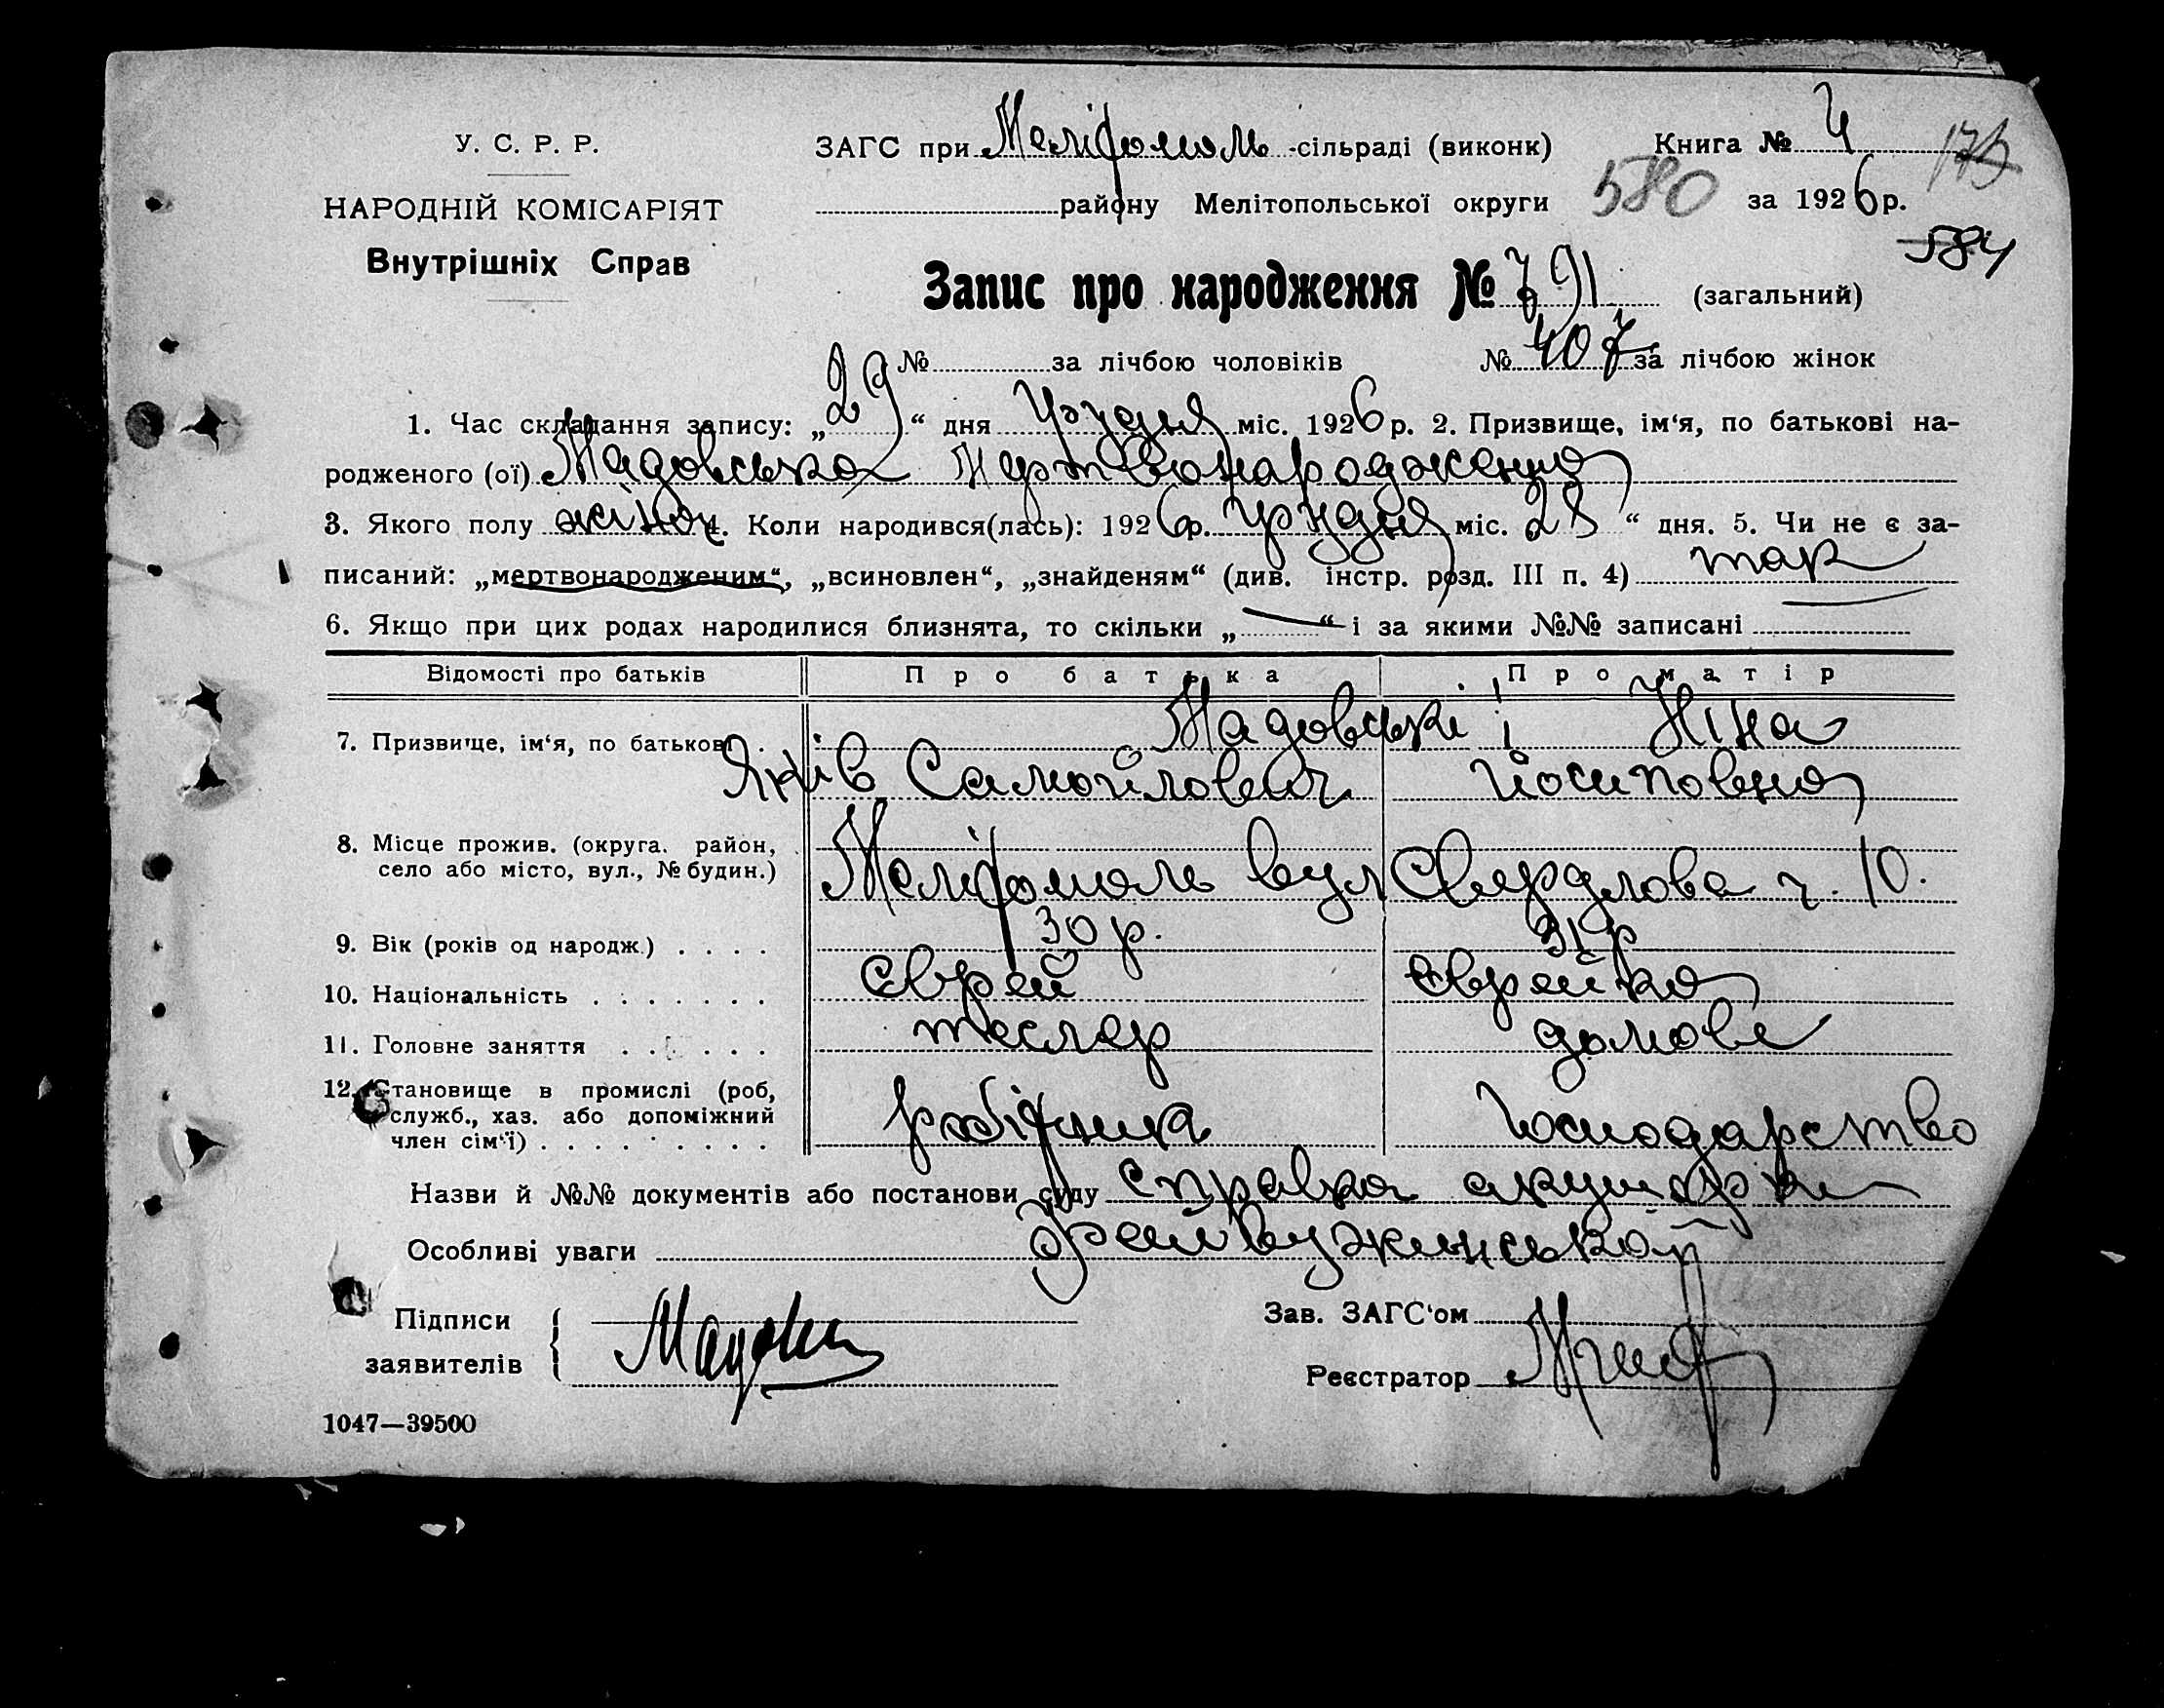 У. С. Р. Р.
НАРОДНІЙ КОМІСАРІЯТ
Внутрішніх Справ
ЗАГС при Мелітополь -сільраді (виконк) Книга № 4
району Мелітопольської округи 580 за 1926 р.
584
Запис про народження № 791 (загальний)
№ за лічбою чоловіків № 407 за лічбою жінок
1. Час складання запису: „29“ дня Грудня міс. 1926 р. 2. Призвище, ім‘я, по батькові на-
родженого (ої) Мадовська Мертвонароджена
3. Якого полу жіноч 4. Коли народився(лась): 1926 р. Грудня міс. 28 “ дня. 5. Чи не є за-
писаний: „мертвонародженим“, „всиновлен“, „знайденям“ (див. інстр. розд. III п. 4) так
6. Якщо при цих родах народилися близнята, то скільки „ “ і за якими №№ записані
Відомості про батьків Про батька Про матір
7. Призвище, ім‘я, по батькові . Мадовські і Ніна
Яків Самойлович Йосиповна
8. Місце прожив. (округа. район,
село або місто, вул., № будин.) Мелітополь вул Свердлова ч. 10.
9. Вік (років од народж.) . . . . 30 р. 31 р
10. Національність . . . . . . . Єврей Єврейка
11. Головне заняття . . . . . . тесляр домове
12. Становище в промислі (роб,
служб., хаз. або допоміжний
член сім‘ї) . . . . . . . . . робітник господарство
Назви й №№ документів або постанови суду справка акушерки
Особливі уваги
Підписи
заявителів
Зав. ЗАГС‘ом
Реєстратор
1047—39500